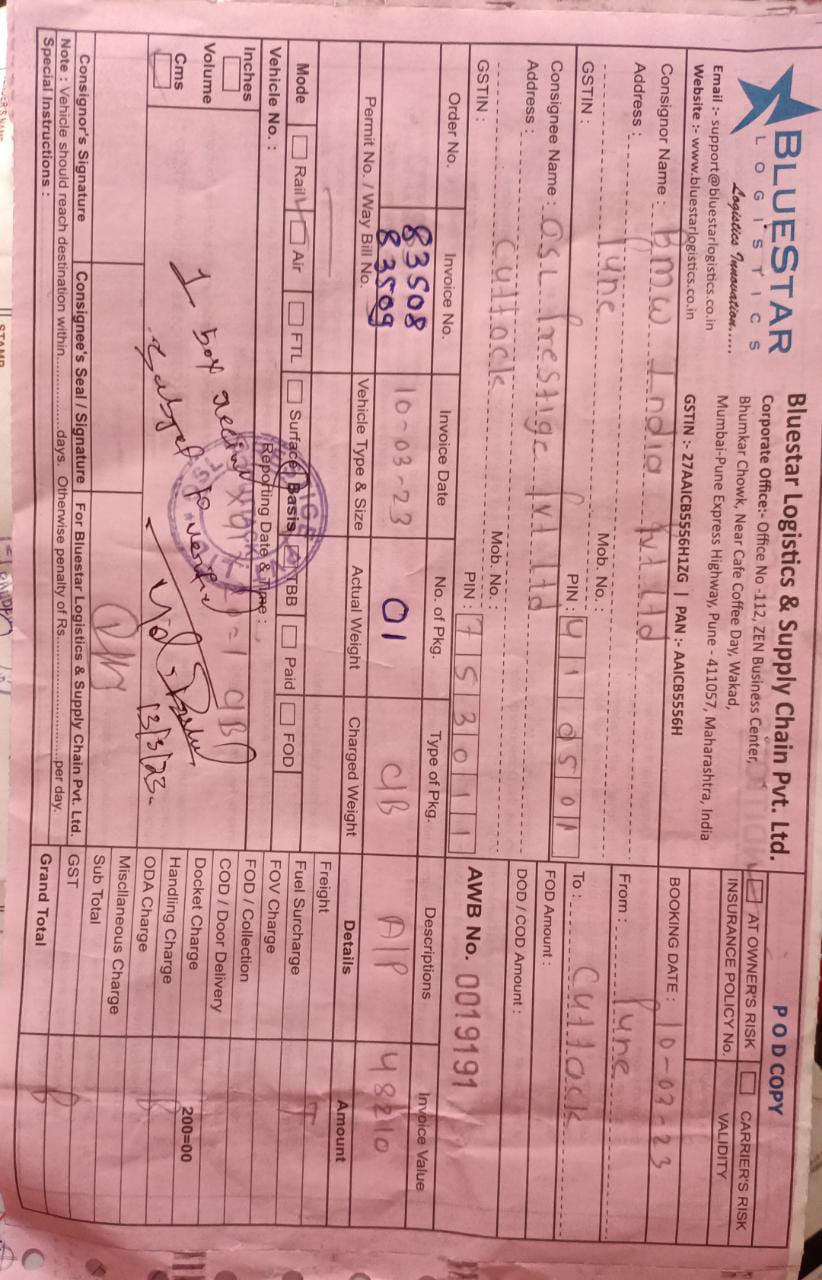 BLUESTAR
LOGISTICS
Logistics Innovation.....
Email :- support@bluestarlogistics.co.in
Website :- www.bluestarlogistics.co.in
Bluestar Logistics & Supply Chain Pvt. Ltd.
Corporate Office:- Office No -112, ZEN Business Center,
Bhumkar Chowk, Near Cafe Coffee Day, Wakad,
Mumbai-Pune Express Highway, Pune - 411057, Maharashtra, India
GSTIN :- 27AAICB5556H1ZG | PAN :- AAICB5556H
POD COPY
AT OWNER'S RISK
CARRIER'S RISK
INSURANCE POLICY No.
VALIDITY
Consignor Name : BMW India Pvt Ltd
BOOKING DATE : 10-03-23
Address :
Pune
Mob. No. :
From : Pune
GSTIN :
PIN : 410501
To : Cuttack
Consignee Name : OSL Prestige Pvt Ltd
FOD Amount :
Address :
DOD / COD Amount :
Cuttack
Mob. No. :
GSTIN :
PIN : 753011
AWB No. 0019191
Order No.
Invoice No.
Invoice Date
No. of Pkg.
Type of Pkg.
Descriptions
Invoice Value
83508
83509
10-03-23
01
C/B
A/P
48210
Permit No. / Way Bill No.
Vehicle Type & Size
Actual Weight
Charged Weight
Details
Amount
Freight
Mode
Rail
Air
FTL
Surface
Basis
TBB
Paid
FOD
Fuel Surcharge
Vehicle No. :
Reporting Date & Time :
FOV Charge
Inches
FOD / Collection
Volume
COD / Door Delivery
Cms
Docket Charge
200=00
1 box
Handling Charge
Subject to
13/3/23
ODA Charge
Miscllaneous Charge
Consignor's Signature
Consignee's Seal / Signature
For Bluestar Logistics & Supply Chain Pvt. Ltd.
Sub Total
Note : Vehicle should reach destination within..............days. Otherwise penalty of Rs..........................per day.
GST
Special Instructions :
Grand Total